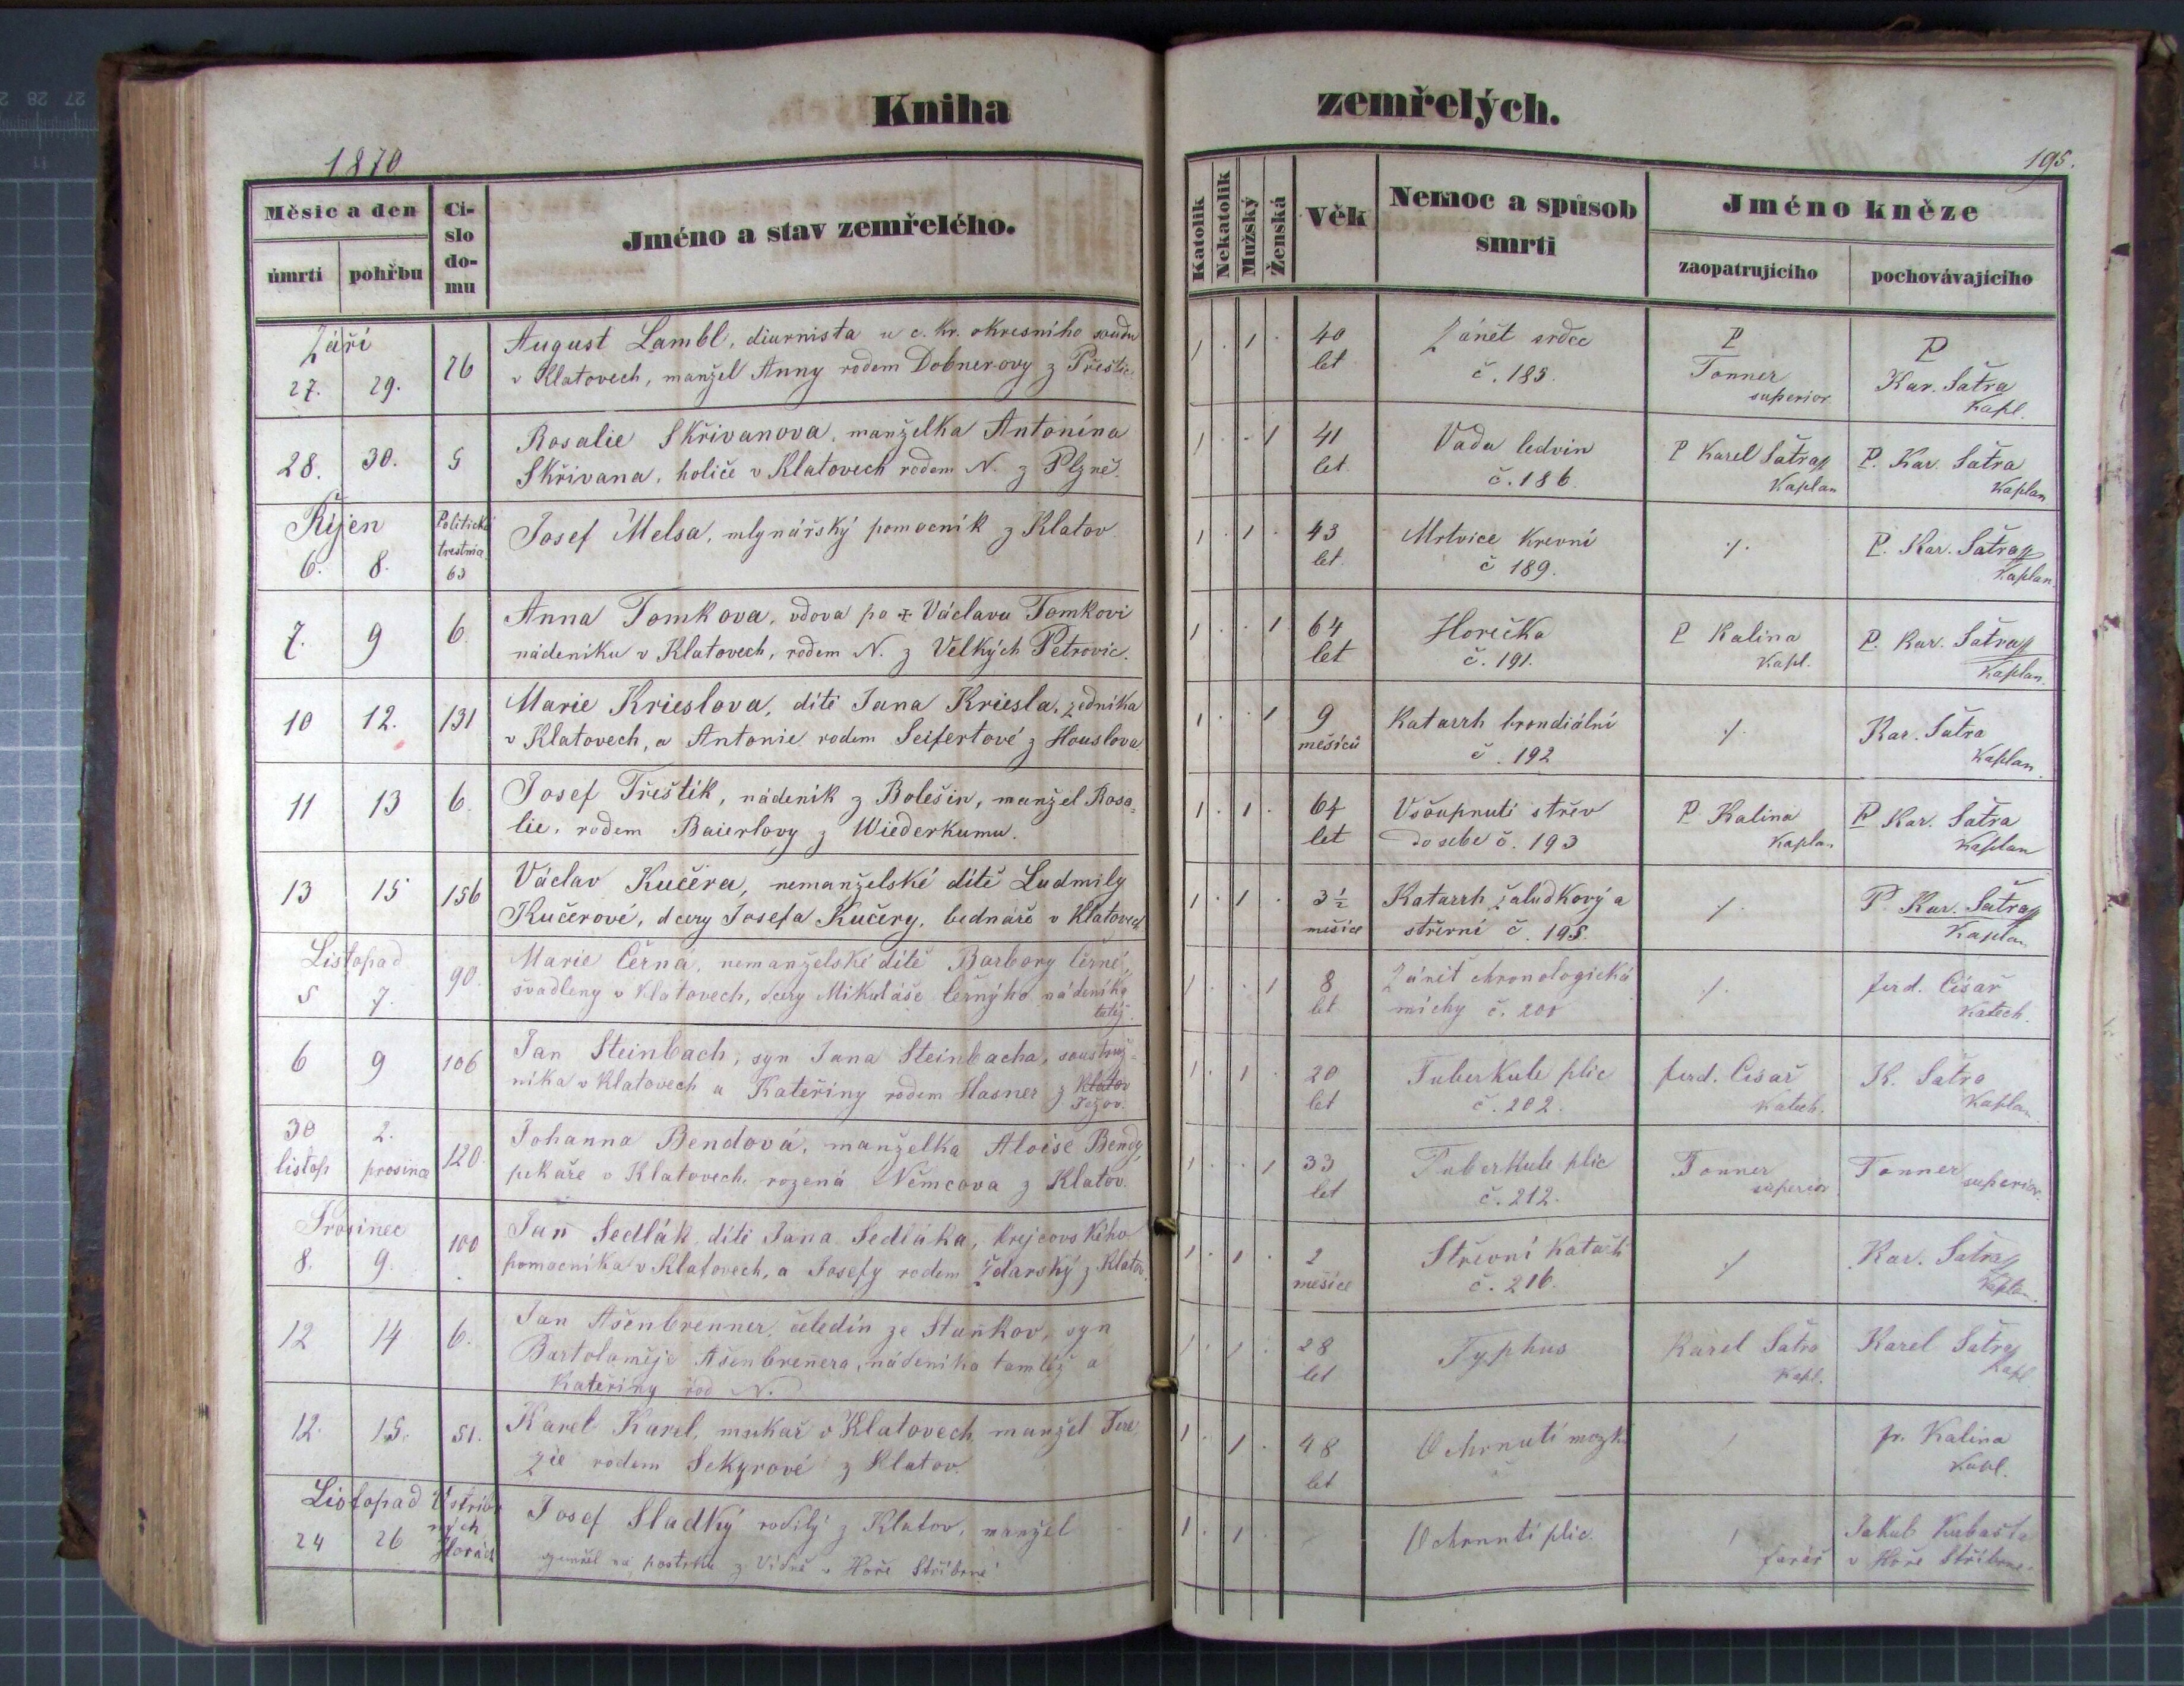 Kniha zemřelých.
1870
195.
Měsíc a den
úmrtí
pohřbu
Číslo domu
Jméno a stav zemřelého.
Katolík
Nekatolík
Mužský
Ženská
Věk
Nemoc a spůsob smrti
Jméno kněze
zaopatrujícího
pochovávajícího
Září
27. 29. 76 August Lambl, diurnista u c. kr. okresního soudu
v Klatovech, manžel Anny rodem Dobnerovy z Přeštic
1 . 1 . 40 let Zánět srdce č. 185. P Tonner superior P Kar. Šatra Kapl.
28. 30. 5 Rosalie Skřivanova, manželka Antonína
Skřivana, holiče v Klatovech rodem N. z Plzně.
1 . . 1 41 let Vada ledvin č. 186. P Karel Šatra Kaplan P. Kar. Šatra Kaplan
Říjen
6. 8. Politická trestnia 63 Josef Melsa, mlynářský pomocník z Klatov
1 . 1 . 43 let Mrtvice krevní č 189. ./. P. Kar. Šatra Kaplan
7. 9 6. Anna Tomkova, vdova po + Václavu Tomkovi
nádeníku v Klatovech, rodem N. z Velkých Petrovic.
1 . . 1 64 let Horečka č. 191. P Kalina Kapl. P. Kar. Šatra Kaplan.
10 12. 131 Marie Krieslova, dítě Jana Kriesla, zedníka
v Klatovech, a Antonie rodem Seifertové z Houslova
1 . . 1 9 měsíců Katarrh brondiální č. 192 ./. Kar. Šatra Kaplan.
11 13 6. Josef Třeštík, nádeník z Bolešin, manžel Rosa-
lie, rodem Baierlovy z Wiederkumu.
1 . 1 . 64 let Všoupnutí střev do sebe č. 193 P Kalina Kaplan P. Kar. Šatra Kaplan
13 15 156 Václav Kučera, nemanželské dítě Ludmily
Kučerové, dcery Josefa Kučery, bednáře v Klatovech
1 . 1 . 3½ měsíce Katarrh žaludkový a střevní č. 195. ./. P. Kar. Šatra Kaplan
Listopad
5 7 90. Marie Černá, nemanželské dítě Barbory Černé,
švadleny v Klatovech, dcery Mikuláše Černýho nádeníka
tutéž
1 . . 1 8 let Zánět chronologická míchy č. 201 ./. ferd. Císař Katech.
6 9 106 Jan Steinbach, syn Jana Steinbacha, soustruž-
níka v Klatovech a Kateřiny rodem Hasner z Klatov
1 . 1 . 20 let Tuberkule plic č. 202. ferd. Cisař Katech. K. Šatra Kaplan
30 listop 2. prosince 120. Johanna Bendová, manželka Aloise Bendy,
pekaře v Klatovech, rozená Němcova z Klatov.
1 . . 1 33 let Tuberkule plic č. 212. Tonner superior Tonner superior.
Prosinec
8. 9. 100 Jan Sedlák dítě Jana Sedláka, krejčovského
pomocníka v Klatovech, a Josefy rodem Žďarský z Klatov.
1 . 1 . 2 měsíce Střevní Katarh č. 216. ./. Kar. Šatra Kaplan.
12 14 6. Jan Ašenbrenner, čeledín ze Staňkov, syn
Bartoloměje Ašenbrenera, nádeníka tamtéž a
Kateřiny rod N.
1 . 1 . 28 let Typhus Karel Šatra Kapl. Karel Šatra Kapl
12. 15. 51. Karel Karel, mukař v Klatovech manžel Tere
zie rodem Sekyrové z Klatov.
1 . 1 . 48 let Ochrnutí mozku / fr. Kalina Kapl.
Listopad
24 26 Josef Sladký rodilý z Klatov, manžel
zemřel na postrku z Vídně v Hoře Stříbrné
1 . 1 . Ochrnutí plic. / Jakub Kubašta farář v Hoře Stříbrné.